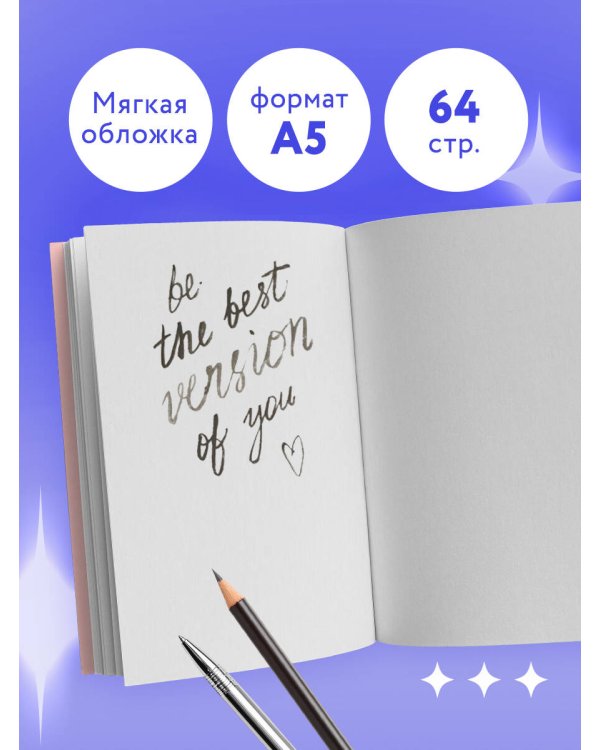 Мягкая
обложка
формат
А5
64
стр.
be
the best
version
of you